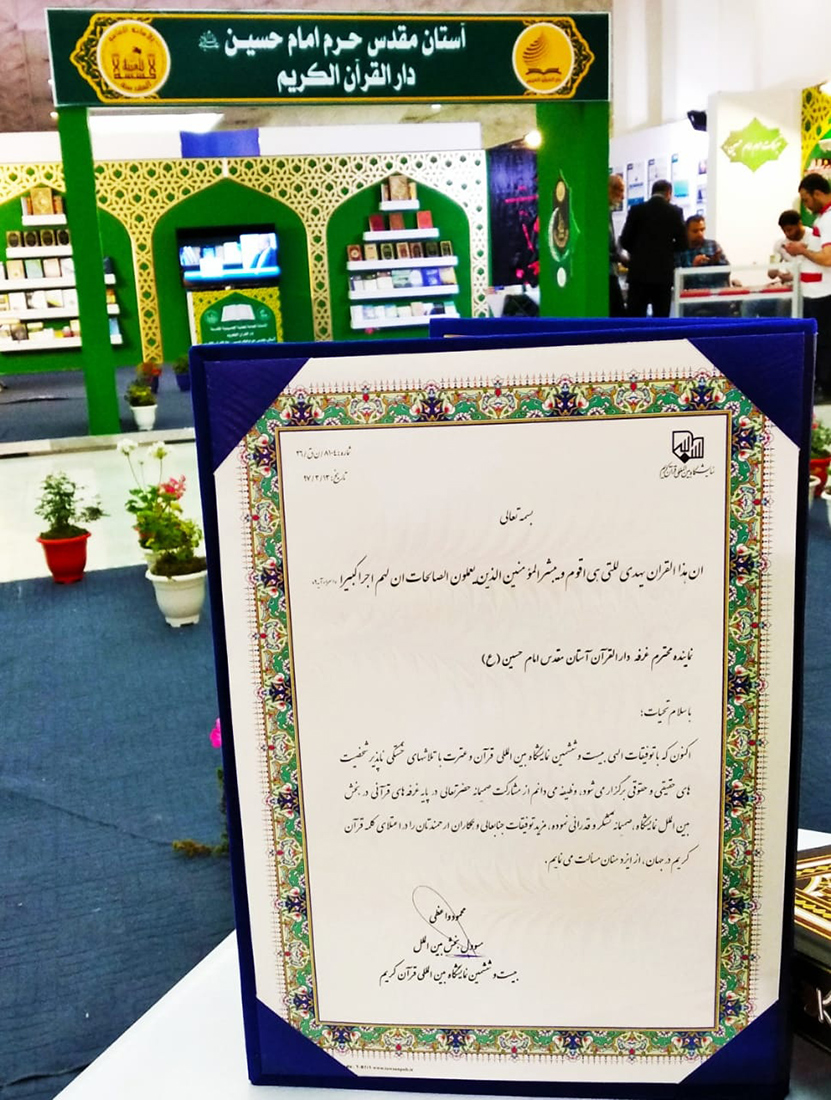 آستان مقدس حرم امام حسین
دار القرآن الکریم
شماره: ۸۱۰۴/ن ق/۲۶
تاریخ: ۹۷/۳/۱۳
نمایشگاه بین المللی قرآن کریم
بسمه تعالی
ان هذا القران یهدی للتی هی اقوم و یبشر المؤمنین الذین یعملون الصالحات ان لهم اجرا کبیرا
نماینده محترم غرفه دار القرآن آستان مقدس امام حسین (ع)
با سلام و تحیات؛
اکنون که با توفیقات الهی بیست و ششمین نمایشگاه بین المللی قرآن و عترت با تلاشهای خستگی ناپذیر شخصیت
های حقیقی و حقوقی برگزار می شود، وظیفه می دانم از مشارکت صمیمانه حضرتعالی در پایه غرفه های قرآنی در بخش
بین الملل نمایشگاه، صمیمانه تشکر و قدردانی نموده، مزید توفیقات جنابعالی و همکاران ارجمندتان را در اعتلای کلمه قرآن
کریم در جهان، از ایزد منان مسألت می نمایم.
محمود واعظی
مسوول بخش بین الملل
بیست و ششمین نمایشگاه بین المللی قرآن کریم